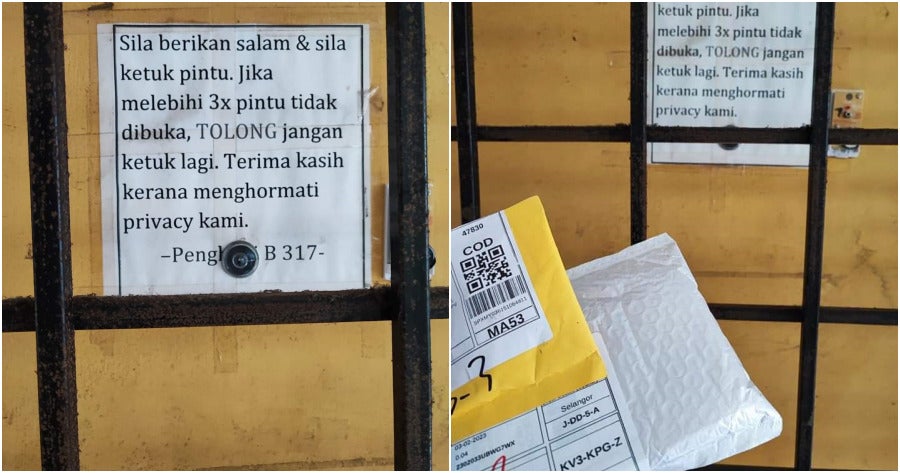 Sila berikan salam & sila
ketuk pintu. Jika
melebihi 3x pintu tidak
dibuka, TOLONG jangan
ketuk lagi. Terima kasih
kerana menghormati
privacy kami.
B 317-
ketuk pintu. Jika
melebihi 3x pintu tidak
dibuka, TOLONG jangan
ketuk lagi. Terima kasih
kerana menghormati
privacy kami.
47830
COD
MA53
-3
03-02-2023
0.04
2302033UBWG7WX
Selangor
J-DD-5-A
KV3-KPG-Z